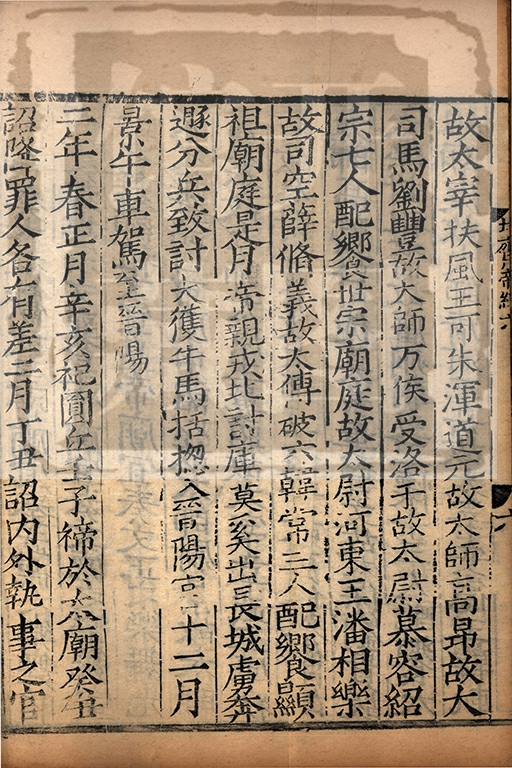 故太宰扶風王可朱渾道元故太師高昂故大
司馬劉豐故太師万俟受洛干故太尉慕容紹
宗七人配饗世宗廟庭故太尉河東王潘相樂
故司空薛脩義故太傅破六韓常三人配饗顯
祖廟庭是月帝親戎北討庫莫奚出長城虜奔
遯分兵致討大獲牛馬括揔入晉陽宮十二月
景午車駕至晉陽
二年春正月辛亥祀圓丘壬子禘於太廟癸丑
詔降罪人各有差二月丁丑詔內外執事之官